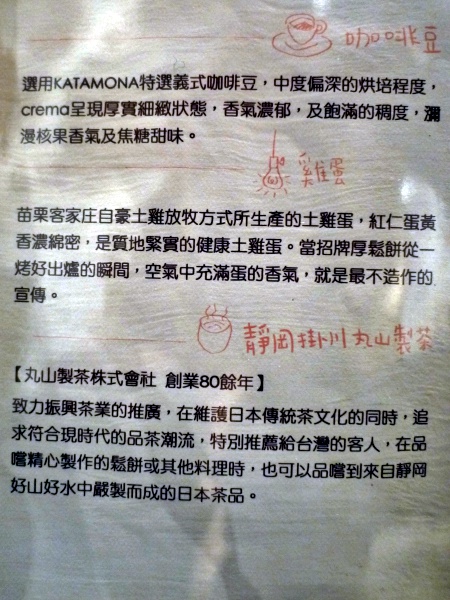 咖啡豆
選用KATAMONA特選義式咖啡豆，中度偏深的烘培程度，
crema呈現厚實細緻狀態，香氣濃郁，及飽滿的稠度，瀰
漫核果香氣及焦糖甜味。
雞蛋
苗栗客家庄自豪土雞放牧方式所生產的土雞蛋，紅仁蛋黃
香濃綿密，是質地緊實的健康土雞蛋。當招牌厚鬆餅從一
烤好出爐的瞬間，空氣中充滿蛋的香氣，就是最不造作的
宣傳。
靜岡掛川丸山製茶
【丸山製茶株式會社 創業80餘年】
致力振興茶業的推廣，在維護日本傳統茶文化的同時，追
求符合現時代的品茶潮流，特別推薦給台灣的客人，在品
嚐精心製作的鬆餅或其他料理時，也可以品嚐到來自靜岡
好山好水中嚴製而成的日本茶品。